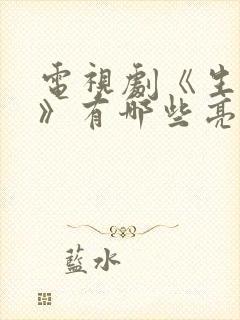 電視劇《生
》有哪些亮
藍水